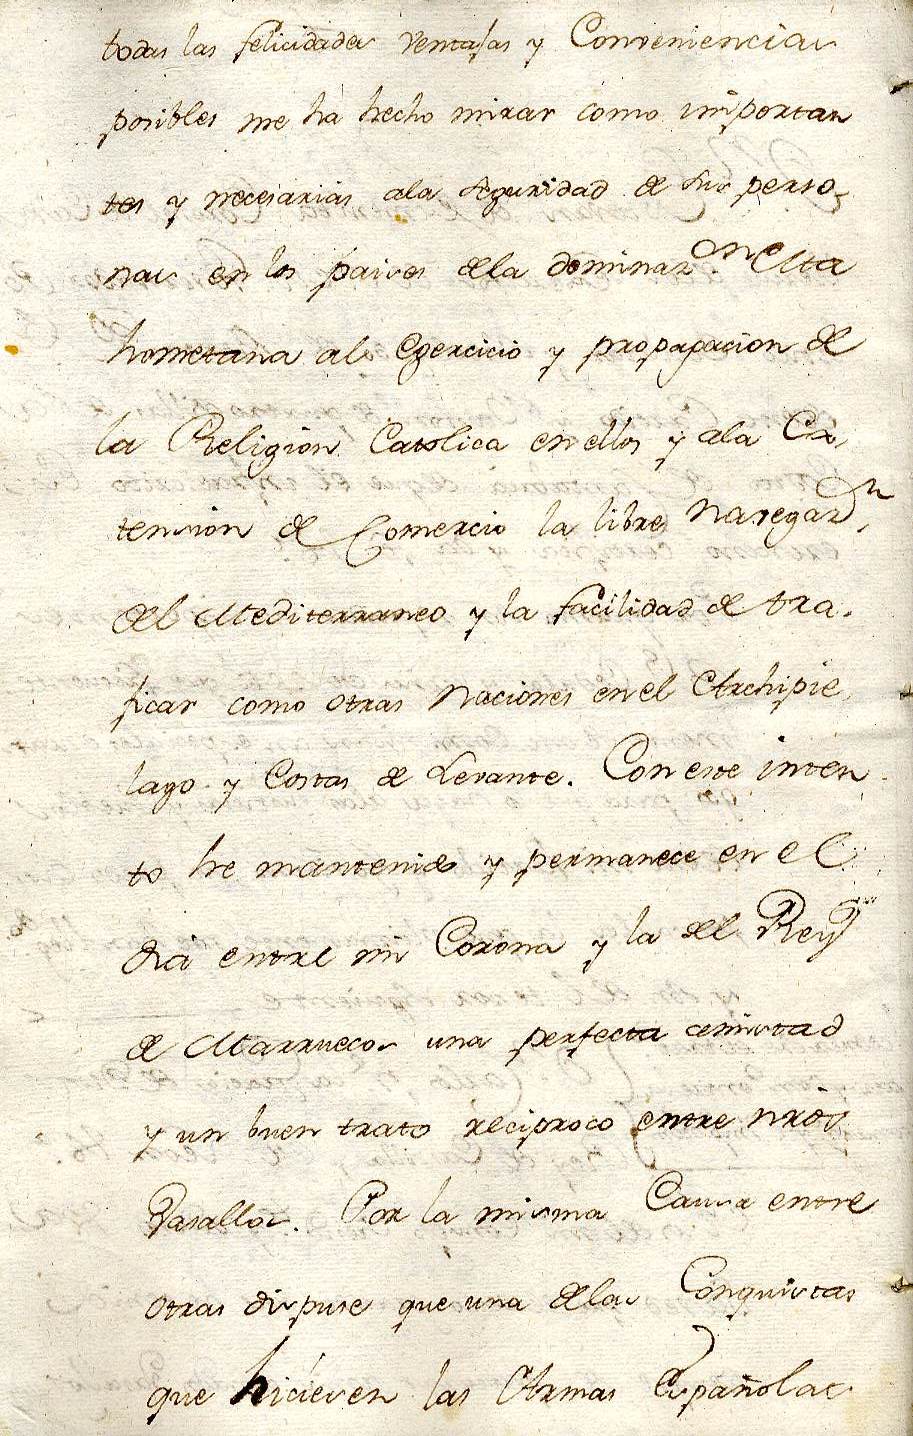 todas las felicidades ventajas y Conveniencias
posibles me há hecho mirar como importan
tes y necesarias ala seguridad de sus perso-
nas en los paises dela dominaz.on Ma
hometana al egercicio y propagacion de
la Religion Catolica en ellos y ala Ex-
tension de Comercio la libre Navegaz.n
del Mediterraneo y la facilidad de tra-
ficar como otras Naciones en el Archipie-
lago y Costas de Levante. Con este inten-
to he mantenido y permanece en el
dia entre mi Corona y la del Rey
de Marruecos una perfecta amistad
y un buen trato reciproco entre nrõs
Vasallos. Por la misma Causa entre
otras dispuse que una delas Conquistas
que hiciesen las Armas Españolas